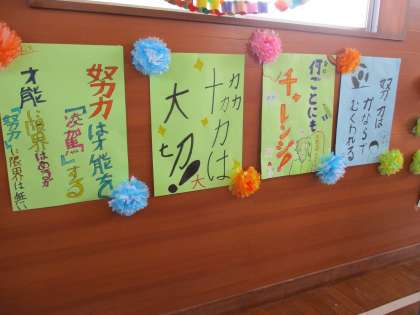 努力は才能を
『凌駕』する
才能に限界はあるが
『努力』に限界は無い
協力は
大切!
大
何ごとにも
チャレンジ
努力は
かならず
むくわれる